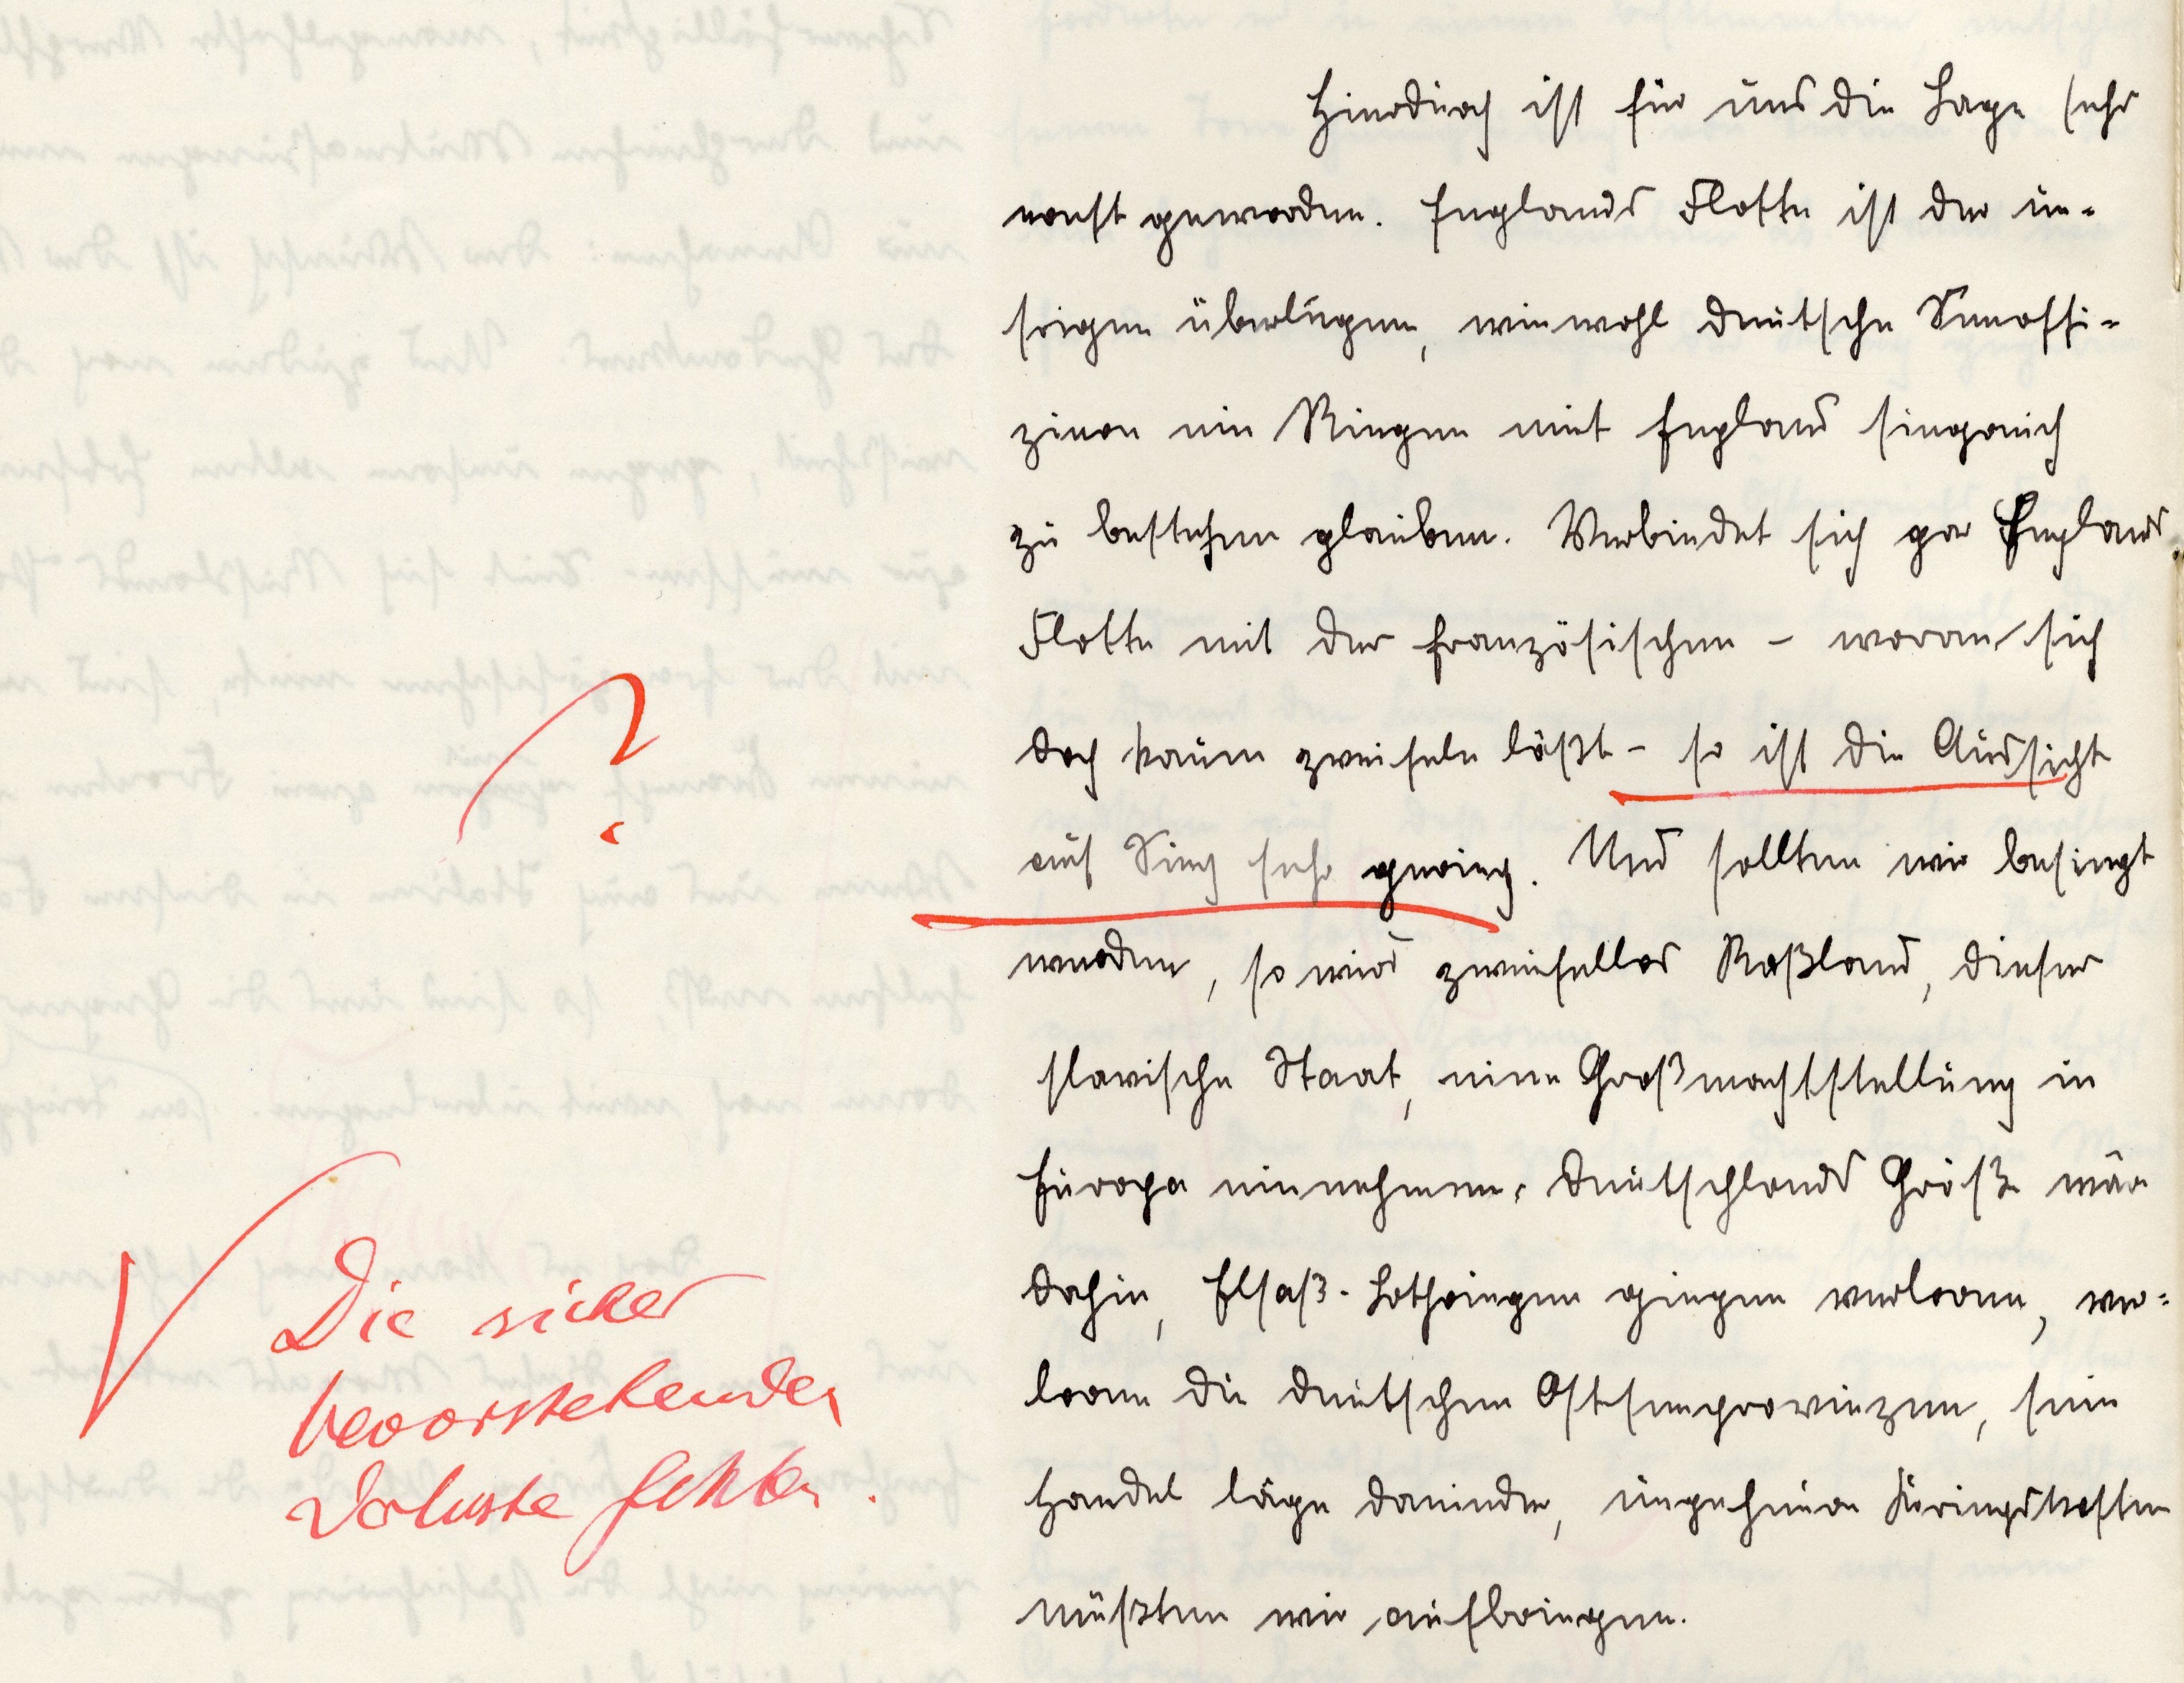 Hierdurch ist für uns die Lage sehr
ernst geworden. Englands Flotte ist der un-
srigen überlegen, wiewohl deutsche Seeoffi-
ziere ein Ringen mit England siegreich
zu bestehen glauben. Verbindet sich gar Englands
Flotte mit der französischen – woran sich
doch kaum zweifeln läßt – so ist die Aussicht
auf Sieg sehr gering. Und sollten wir besiegt
werden, so wird zweifellos Rußland, dieser
slavische Staat, eine Großmachtstellung in
Europa einnehmen, Deutschlands Größe wär
dahin, Elsaß-Lothringen gingen verloren, ver-
loren die deutschen Ostseeprovinzen, sein
Handel läge danieder, ungeheure Kriegskosten
müßten wir aufbringen.
?
Die sicher
bevorstehenden
Verluste fehlen.